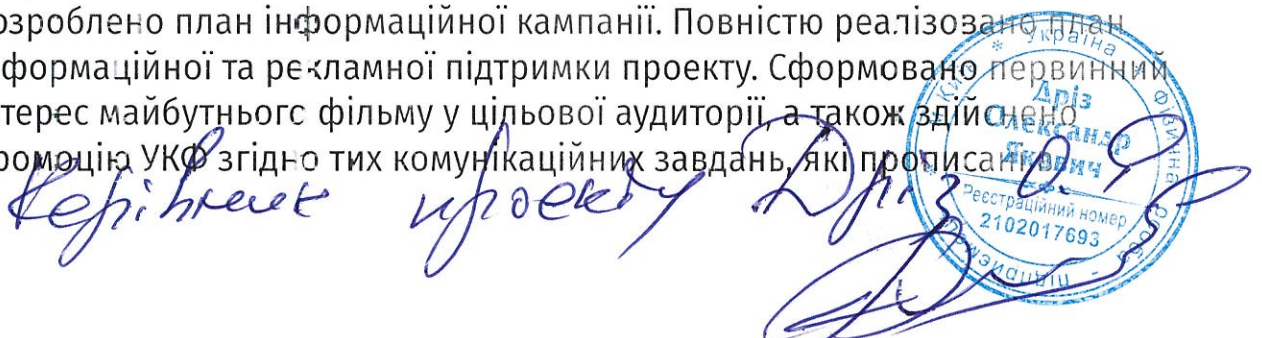 озроблено план інформаційної кампанії. Повністю реалізовано план
формаційної та рекламної підтримки проекту. Сформовано первинний
терес майбутнього фільму у цільової аудиторії, а також здійснено
ромоцію УКФ згідно тих комунікаційних завдань, які прописані
Керівник проекту Дріз О. Я.
* Україна * Київ
Фізична особа - підприємець
Дріз
Олександр
Якович
Реєстраційний номер
2102017693